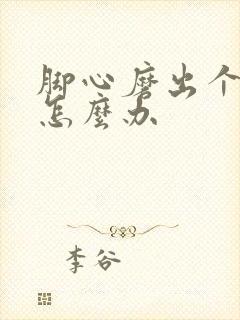 脚心磨出个
怎麼办
李谷